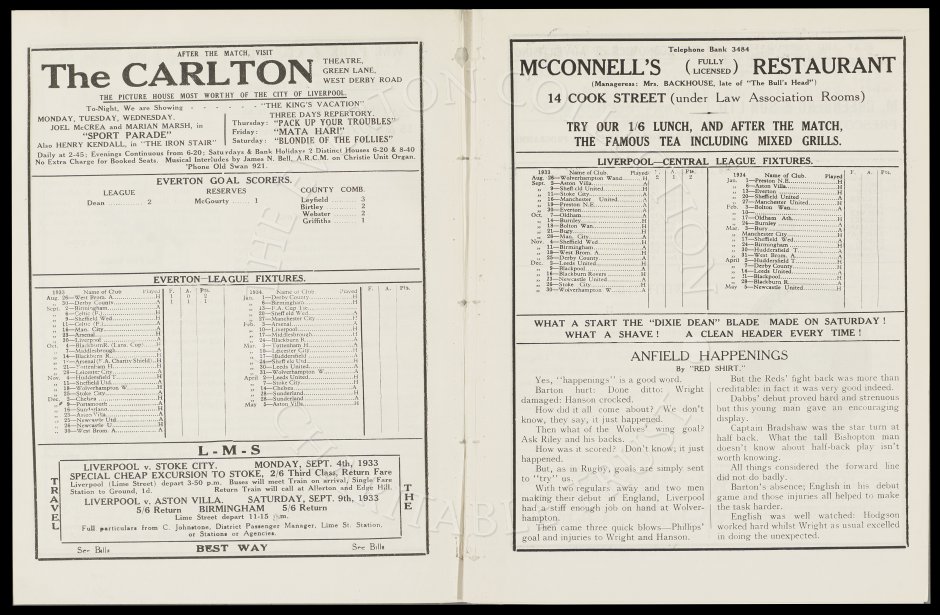 AFTER THE MATCH, VISIT
The CARLTON THEATRE,
GREEN LANE,
WEST DERBY ROAD
THE PICTURE HOUSE MOST WORTHY OF THE CITY OF LIVERPOOL.
To-Night, We are Showing - - - - - - - "THE KING'S VACATION"
MONDAY, TUESDAY, WEDNESDAY.
JOEL McCREA and MARIAN MARSH, in
"SPORT PARADE"
Also HENRY KENDALL, in "THE IRON STAIR"
THREE DAYS REPERTORY.
Thursday: "PACK UP YOUR TROUBLES"
Friday: "MATA HARI"
Saturday: "BLONDIE OF THE FOLLIES"
Daily at 2-45; Evenings Continuous from 6-20; Saturdays & Bank Holidays 2 Distinct Houses 6-20 & 8-40
No Extra Charge for Booked Seats. Musical Interludes by James N. Bell, A.R.C.M. on Christie Unit Organ.
'Phone Old Swan 921.
EVERTON GOAL SCORERS.
LEAGUE
Dean ........ 2
RESERVES
McGourty .... 1
COUNTY COMB.
Leyfield .... 3
Birtley .... 2
Webster .... 2
Griffiths .... 1
EVERTON—LEAGUE FIXTURES.
1933 Name of Club Played F. A. Pts.
Aug. 26—West Brom. A. H 1 0 2
30—Derby County A 1 1 1
Sept. 2—Birmingham
6—Celtic (F.) H
9—Sheffield Wed H
11—Celtic (F.) A
16—Man. City A
23—Arsenal H
30—Liverpool
Oct. 4—Blackburn R. (Lanc. Cup)
7—Middlesbrough
14—Blackburn R.
Arsenal (F.A. Charity Shield) H
21—Tottenham H.
28—Leicester City
Nov. 4—Huddersfield T.
11—Sheffield Utd.
18—Wolverhampton W.
25—Stoke City
Dec. 2—Chelsea
9—Portsmouth
16—Sunderland
23—Aston Villa
25—Newcastle Utd.
26—Newcastle U.
30—West Brom. A.
1934. Name of Club. Played F. A. Pts.
Jan. 1—Derby County H
6—Birmingham
13—F.A. Cup Tie
20—Sheffield Wed
27—Manchester City
Feb. 3—Arsenal
10—Liverpool
17—Middlesbrough
24—Blackburn R.
Mar. 3—Tottenham H
10—Leicester City
17—Huddersfield
24—Sheffield Utd
30—Leeds United
31—Wolverhampton W.
April 2—Leeds United
7—Stoke City
14—Chelsea
21—Sunderland
28—Sunderland
May 5—Aston Villa
L-M-S
TRAVEL
THE
LIVERPOOL v. STOKE CITY. MONDAY, SEPT. 4th, 1933
SPECIAL CHEAP EXCURSION TO STOKE, 2/6 Third Class, Return Fare
Liverpool (Lime Street) depart 3-50 p.m. Buses will meet Train on arrival, Single Fare
Station to Ground, 1d. Return Train will call at Allerton and Edge Hill.
LIVERPOOL v. ASTON VILLA. SATURDAY, SEPT. 9th, 1933
5/6 Return BIRMINGHAM 5/6 Return
Lime Street depart 11-15 p.m.
Full particulars from C. Johnstone, District Passenger Manager, Lime St. Station,
or Stations or Agencies.
See Bills BEST WAY See Bills
Telephone Bank 3484
McCONNELL'S (FULLY LICENSED) RESTAURANT
(Manageress: Mrs. BACKHOUSE, late of "The Bull's Head")
14 COOK STREET (under Law Association Rooms)
TRY OUR 1/6 LUNCH, AND AFTER THE MATCH,
THE FAMOUS TEA INCLUDING MIXED GRILLS.
LIVERPOOL—CENTRAL LEAGUE FIXTURES.
1933 Name of Club. Played F. A. Pts.
Aug. 26—Wolverhampton Wand.
Sept. 2—Aston Villa
9—Sheffield United
Stoke City
16—Manchester United
Preston N.E.
30—Everton
Oct. 7—Oldham
14—Burnley
18—Bolton Wan.
21—Bury
28—Man. City
Nov. 4—Sheffield Wed.
11—Birmingham
18—West Brom. A.
25—Derby County
Dec. 2—Leeds United
9—Blackpool
16—Blackburn Rovers
23—Newcastle United
26—Stoke City
30—Wolverhampton W.
1934 Name of Club. Played F. A. Pts.
Jan. 1—Preston N.E.
6—Aston Villa
13—Everton
20—Sheffield United
27—Manchester United
Feb. 3—Bolton Wan.
10—
17—Oldham Ath.
24—Burnley
Mar. 3—Bury
Manchester City
17—Sheffield Wed.
24—Birmingham
30—Huddersfield T.
31—West Brom. A.
April 2—Huddersfield T.
7—Derby County
14—Leeds United
21—Blackpool
28—Blackburn R.
May 5—Newcastle United
WHAT A START THE "DIXIE DEAN" BLADE MADE ON SATURDAY!
WHAT A SHAVE! A CLEAN HEADER EVERY TIME!
ANFIELD HAPPENINGS
By "RED SHIRT."
Yes, "happenings" is a good word.
Barton hurt: Done ditto: Wright
damaged: Hanson crocked.
How did it all come about? We don't
know, they say, it just happened.
Then what of the Wolves' wing goal?
Ask Riley and his backs.
How was it scored? Don't know; it just
happened.
But, as in Rugby, goals are simply sent
to "try" us.
With two regulars away and two men
making their debut in England, Liverpool
had a stiff enough job on hand at Wolver-
hampton.
Then came three quick blows—Phillips'
goal and injuries to Wright and Hanson.
But the Reds' fight back was more than
creditable: in fact it was very good indeed.
Dabbs' debut proved hard and strenuous
but this young man gave an encouraging
display.
Captain Bradshaw was the star turn at
half back. What the tall Bishopton man
doesn't know about half-back play isn't
worth knowing.
All things considered the forward line
did not do badly.
Barton's absence; English in his debut
game and those injuries all helped to make
the task harder.
English was well watched: Hodgson
worked hard whilst Wright as usual excelled
in doing the unexpected.